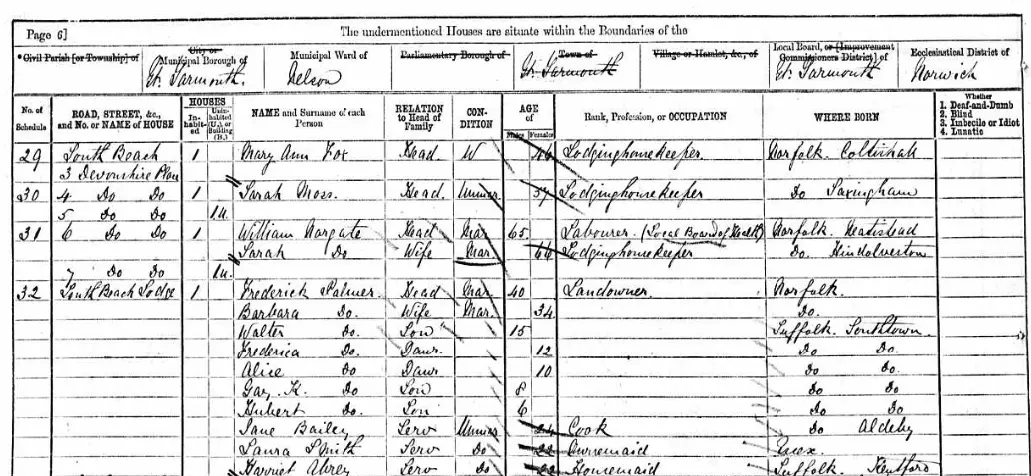 Page 6] The undermentioned Houses are situate within the Boundaries of the
*Civil Parish [or Township] of City or Municipal Borough of Municipal Ward of Parliamentary Borough of Town of Village or Hamlet, &c., of Local Board, or [Improvement Commissioners District] of Ecclesiastical District of
Gt. Yarmouth. Nelson Gt. Yarmouth Gt. Yarmouth Norwich
No. of Schedule ROAD, STREET, &c., and No. or NAME of HOUSE HOUSES Inhabited Uninhabited (U.), or Building (B.) NAME and Surname of each Person RELATION to Head of Family CONDITION AGE of Males Females Rank, Profession, or OCCUPATION WHERE BORN Whether 1. Deaf-and-Dumb 2. Blind 3. Imbecile or Idiot 4. Lunatic
29 South Beach 1 Mary Ann Fox Head W Lodginghousekeeper. Norfolk. Coltishall
3 Devonshire
30 4 Do Do 1 Sarah Moss. Head Lodginghousekeeper Do
5 Do Do 1 U.
31 6 Do Do 1 William Head Mar 65 Labourer. (Local Board of Health) Norfolk.
Sarah Do Wife Mar. Lodginghousekeeper Do. Hindolveston
7 Do Do 1 U.
32 South Beach Lodge 1 Frederick Palmer. Head Mar. 40 Landowner. Norfolk.
Barbara Do. Wife Mar. 34 Do.
Walter Do. Son 15 Suffolk. Southtown.
Frederica Do. Daur 12 Do Do.
Alice Do Daur 10 Do Do.
K. Do Son 8 Do Do
Hubert Do. Son 6 Do Do
Jane Bailey Serv 24 Cook Do Aldeby
Laura Smith Serv Do
Harriet Serv Do Housemaid Suffolk. Kentford